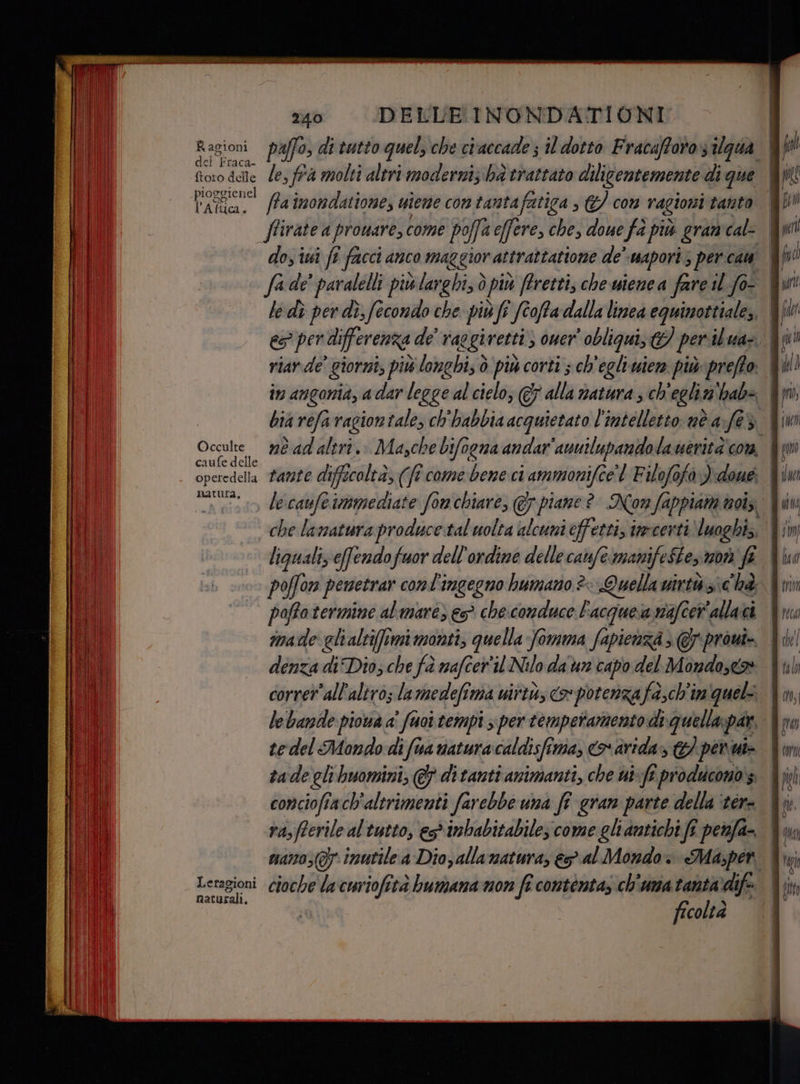 240 DELLE INONDATIONI
Ragioni
del Fraca-
storo delle
pioggie nel
l'Africa.
passo, di tutto quel, che ci accade; il dotto Fracastoro, il qua
le, frà molti altri moderni, hà trattato diligentemente di que
sta inondatione, uiene con tanta fatiga, & con ragioni tanto
stirate a prouare, come possa essere, che, doue fà più gran cal-
do, iui si facci anco maggior attrattatione de' uapori; per cau
sa de' paralelli più larghi, ò più stretti, che uiene a fare il so-
le dì per dì, secondo che più si scosta dalla linea equinottiale,
& per differenza de' raggi retti, ouer' obliqui, & per il ua-
riar de' giorni, più longhi, ò più corti; ch'egli uien più presso
in angonia, a dar legge al cielo, & alla natura, ch'egli n'hab-
bia resa ragion tale, ch'habbia acquietato l'intelletto nè a sè,
Occulte
cause delle
opere della
natura.
nè ad altri. Ma, che bisogna andar' auuilupando la uerità con
tante difficoltà, (si come bene ci ammonisce'l Filosofo) doue
le cause immediate son chiare, & piane? Non sappiam noi,
che la natura produce tal uolta alcuni effetti, in certi luoghi,
li quali, essendo fuor dell'ordine delle cause manifeste, non si
posson penetrar con l'ingegno humano? Quella uirtù, c'hà
posto termine al mare, & che conduce l'acque a nascer' alla ci
ma de gli altissimi monti, quella somma sapienza, & proui-
denza di Dio, che fà nascer'il Nilo da un capo del Mondo, &
correr' all'altro; la medesima uirtù, & potenza fà, ch'in quel-
le bande pioua a' suoi tempi, per temperamento di quella par
te del Mondo di sua natura caldissima, & arida, & per ui-
ta de gli huomini, & di tanti animanti, che ui si producono;
conciosia ch'altrimenti sarebbe una sì gran parte della ter-
ra, sterile al tutto, & inhabitabile, come gli antichi si pensa-
uano, & inutile a Dio, alla natura, & al Mondo. Ma, per
Le ragioni
naturali.
cioche la curiosità humana non si contenta, ch'una tanta dif-
ficoltà